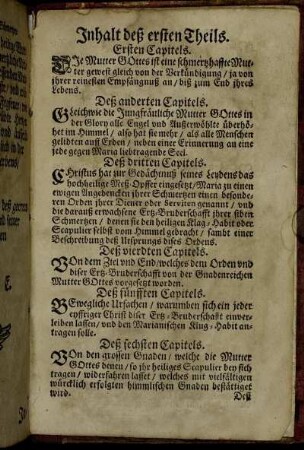 Inhalt deß ersten Theils.
Ersten Capitels.
DIe Mutter GOttes ist eine schmertzhaffte Mut-
ter gewest gleich von der Verkündigung / ja von
ihrer reinesten Empfängnuß an / biß zum End ihres
Lebens.
Deß anderten Capitels.
GLeichwie die Jungfräuliche Mutter GOttes in
der Glory alle Engel und Außerwöhlte überhö-
het im Himmel / also hat sie mehr / als alle Menschen
gelidten auff Erden / neben einer Erinnerung an eine
jede gegen Maria liebtragende Seel.
Deß dritten Capitels.
CHristus hat zur Gedächtnuß seines Leydens das
hochheilige Meß-Opffer eingesetzt / Maria zu einen
ewigen Angedencken ihrer Schmertzen einen besonde-
ren Orden ihrer Diener oder Serviten genannt / und
die darauß erwachsene Ertz-Bruderschafft ihrer siben
Schmertzen / denen sie den heiligen Klag-Habit oder
Scapulier selbst vom Himmel gebracht / sambt einer
Beschreibung deß Ursprungs dises Ordens.
Deß vierdten Capitels.
VOn dem Ziel vnd End welches dem Orden vnd
diser Ertz-Bruderschafft von der Gnadenreichen
Mutter GOttes vorgesetzt worden.
Deß fünfften Capitels.
BEwegliche Ursachen / warumben sich ein jeder
eyffriger Christ diser Ertz-Bruderschafft einver-
leiben lassen / vnd den Marianischen Klag-Habit an-
tragen solle.
Deß sechsten Capitels.
VOn den grossen Gnaden / welche die Mutter
GOttes denen / so ihr heiliges Scapulier bey sich
tragen / widerfahren lasset / welches mit vielfältigen
würcklich erfolgten himmlischen Gnaden bestättiget
wird.
Deß